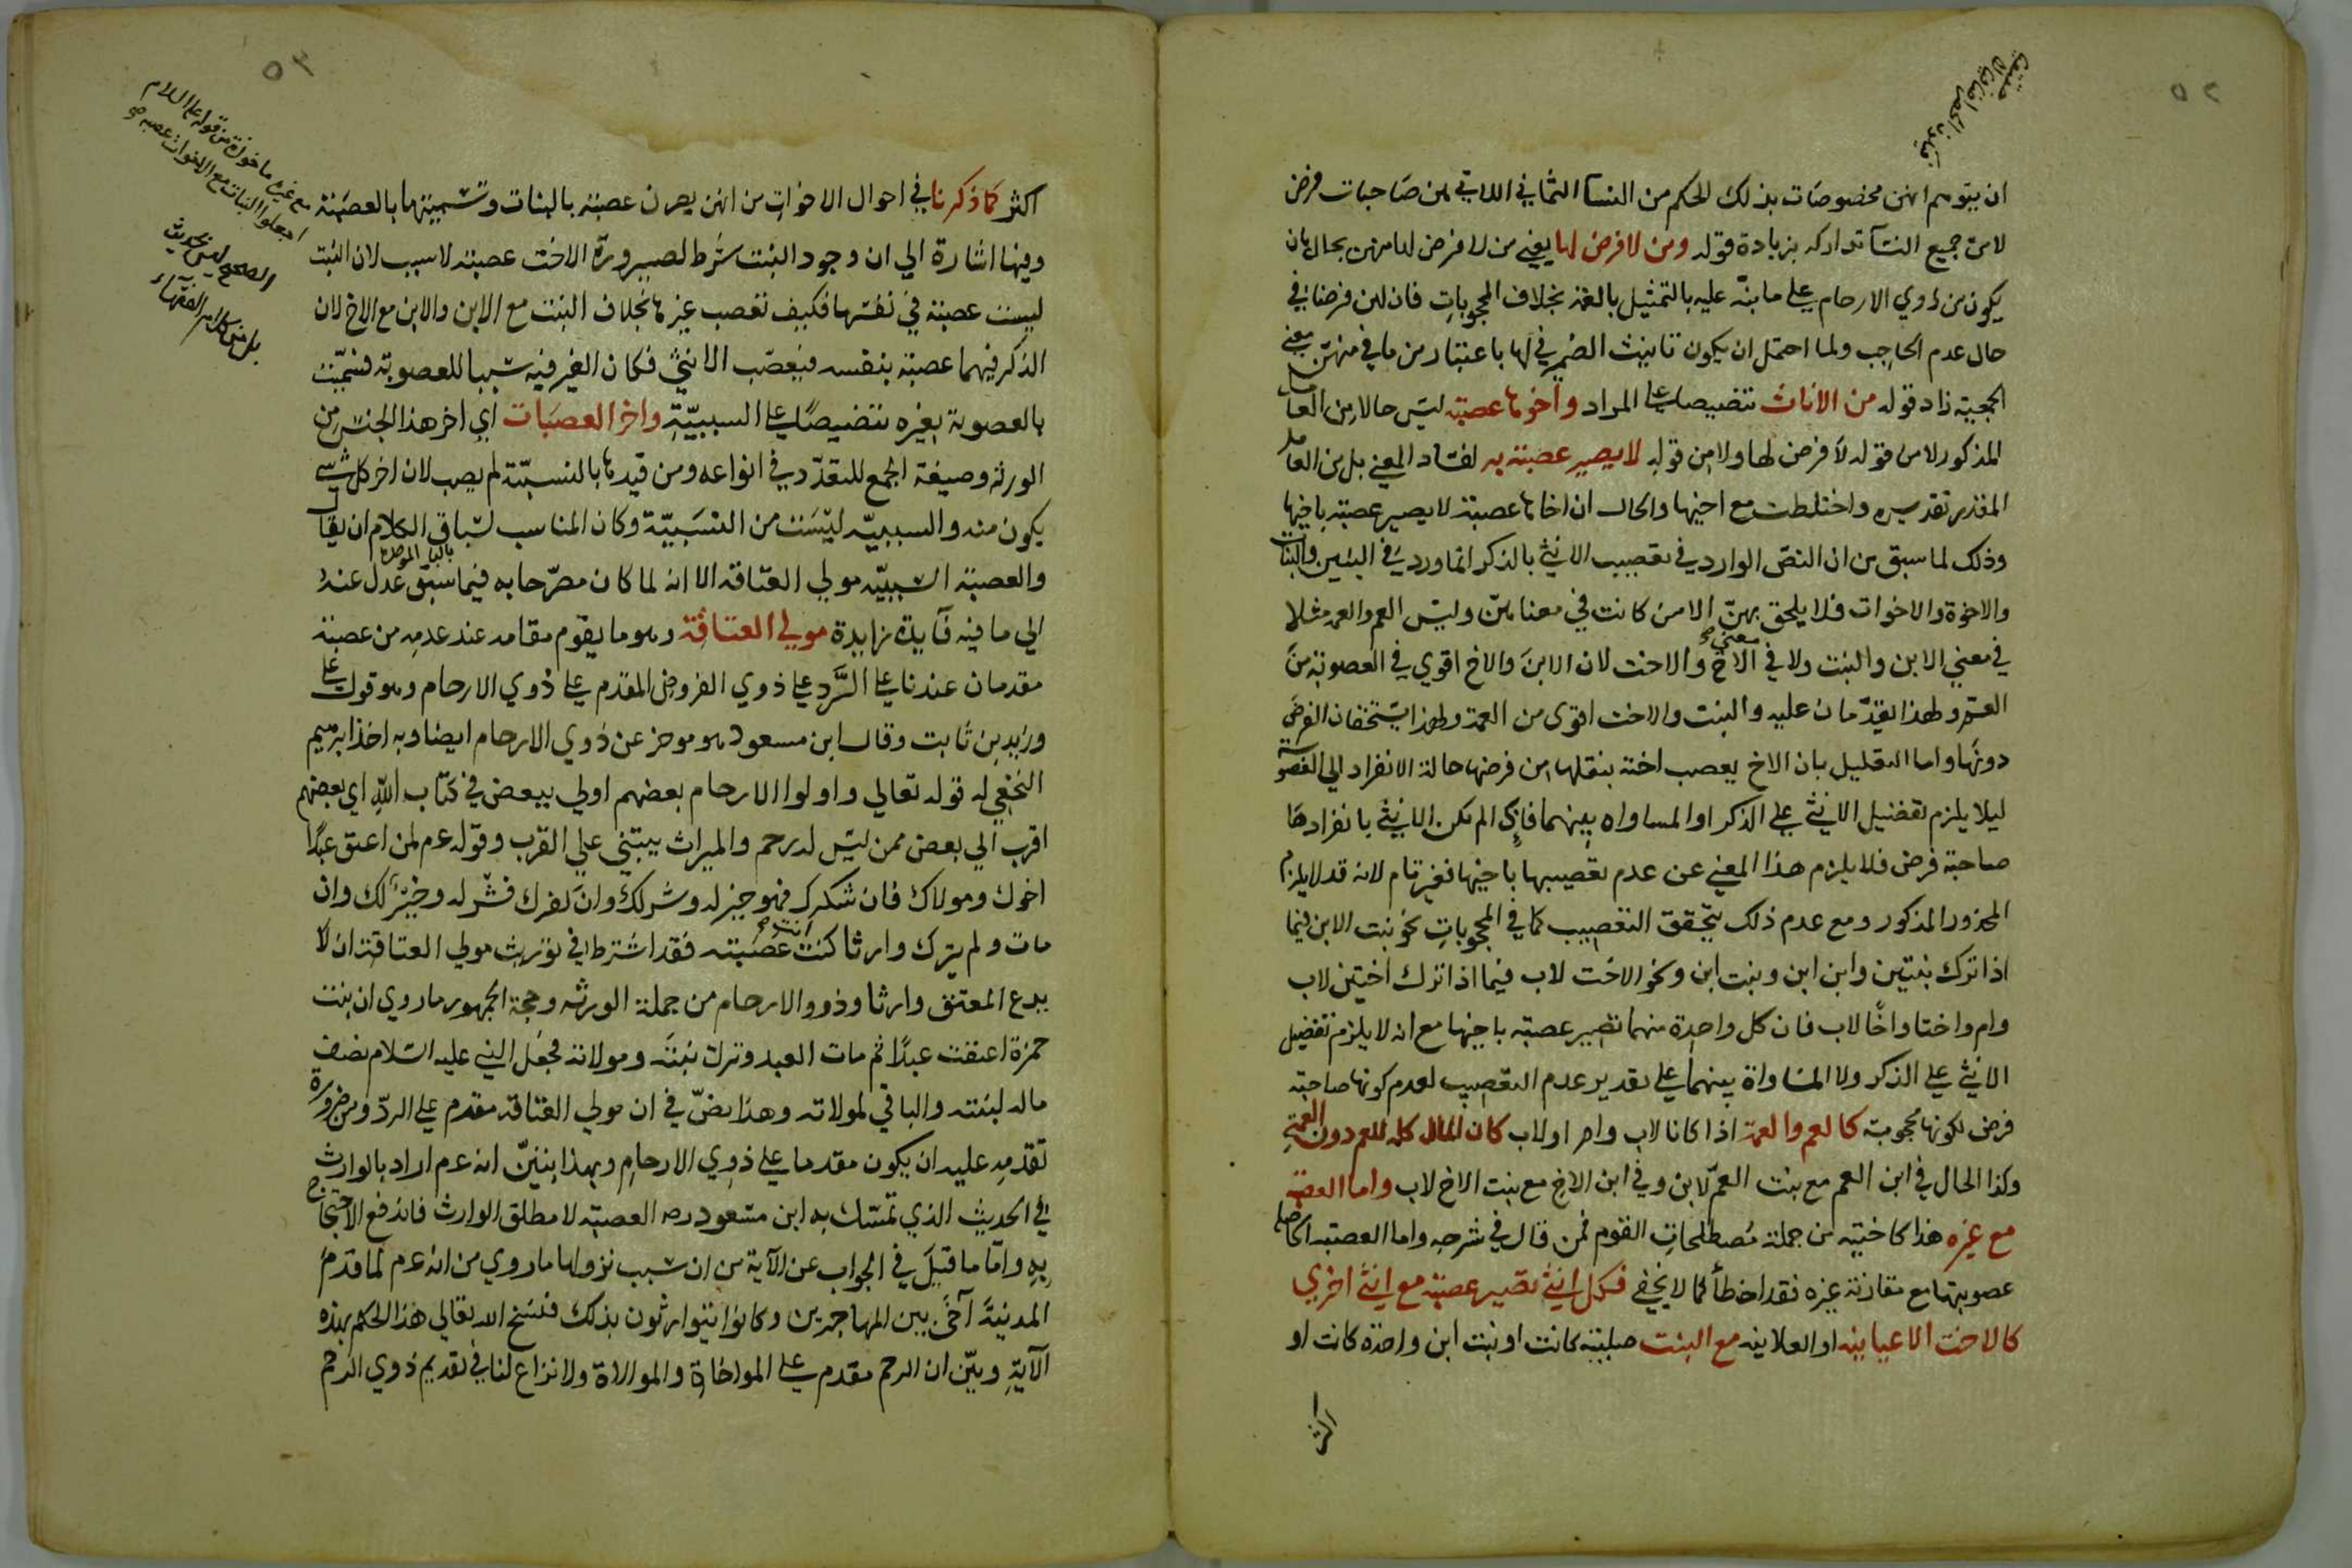 ٥٢
ان يتوهم انهن مخصوصات بذلك الحكم من النسآ الثماني اللاتي هن صاحبات فرض
لا من جميع النسآ تداركه بزيادة قوله ومن لا فرض لها يعني من لا فرض لها منهن بحال بان
يكون من ذوي الارحام على ما نبّه عليه بالتمثيل بالعمة بخلاف المحجوبات فان لهن فرضا في
حال عدم الحاجب ولما احتمل ان يكون تانيث الضمير في لها باعتبار من ما في منهنّ معنى
الجمعية زاد قوله من الاناث تنصيصا على المراد واخوها عصبة ليس حالا من العامل
المذكور لا من قوله لا فرض لها ولا من قوله لا يصير عصبة به لفساد المعني بل من العامل
المقدر تقديره واختلطت مع اخيها والحال ان اخاها عصبة لا يصير عصبة باخيها
وذلك لما سبق من ان النصّ الوارد في تعصيب الانثى بالذكر انما ورد في البنين والبنات
والاخوة والاخوات فلا يلحق بهنّ الا من كانت في معناهنّ وليس العم والعمة مثلا
في معني الابن والبنت ولا في معنى الاخ والاخت لان الابن والاخ اقوي في العصوبة من
العم ولهذا يقدّمان عليه والبنت والاخت اقوى من العمة ولهذا يستحقان الفرض
دونها واما التعليل بان الاخ يعصب اخته بنقلها من فرضها حالة الانفراد الى العصوبة
ليلا يلزم تفضيل الانثى على الذكر او المساواه بينهما فاذا لم تكن الانثى بانفرادها
صاحبة فرض فلا يلزم هذا المعني عن عدم تعصيبها باخيها فغير تام لانه قد لا يلزم
المحذور المذكور ومع عدم ذلك يتحقق التعصيب كما في المحجوبات نحو بنت الابن فيما
اذا ترك بنتين وابن ابن وبنت ابن ونحو الاخت لاب فيما اذا ترك اختين لاب
وام واختا واخًا لاب فان كل واحدة منهما تصير عصبة باخيها مع انه لا يلزم تفضيل
الانثى على الذكر ولا المساواة بينهما على تقدير عدم التعصيب لعدم كونها صاحبة
فرض لكونها محجوبة كالعم والعمة اذا كانا لاب وام او لاب كان المال كله للعم دون العمة
وكذا الحال في ابن العم مع بنت العمّ لابن وفي ابن الاخ مع بنت الاخ لاب واما العصبة
مع غيره هذا كاختيه من جملة مصطلحات القوم فمن قال في شرحه واما العصبة الحاصل
عصوبتها مع مقارنة غيره فقد اخطأ كما لا يخفى فكل انثى تصير عصبة مع انثى اخري
كالاخت الاعيانيه او العلاتيه مع البنت صلبية كانت او بنت ابن واحدة كانت او
اكثر
٥٣
اكثر كما ذكرنا في احوال الاخوات من انهن يصرن عصبة بالبنات وتسميتها بالعصبة
مع غيره ماخوذة من قوله عليه السلام
اجعلوا البنات مع الاخوات عصبة صح
الصحيح ليس بحديث
بل من كلام الفقهآء
وفيها اشارة الي ان وجود البنت شرط لصيرورة الاخت عصبة لا سبب لان البنت
ليست عصبة في نفسها فكيف تعصب غيرها بخلاف البنت مع الابن والابن مع الاخ لان
الذكر فيهما عصبة بنفسه فيعصّب الانثى فكان الغير فيه سببا للعصوبة فسمّيت
بالعصوبة بغيره تنصيصًا على السببيّة واخر العصبات اي اخر هذا الجنس من
الورثة وصيغة الجمع للتعدّد في انواعه ومن قيدها بالنسبيّة لم يصب لان اخر كل شيء
يكون منه والسببيّه ليست من النسبيّة وكان المناسب لسباق الكلام ان يقال
والعصبة السببيّه مولي العتاقة الا انه لما كان مصرّحا به فيما سبق عدل عنه
بالبآ الموحدة
الى ما فيه فآيدة زايدة مولى العتاقة وهو ما يقوم مقامه عند عدمه من عصبة
مقدمان عندنا على الرّدّ على ذوي الفروض المقدم على ذوي الارحام وهو قول علي
وزيد بن ثابت وقال ابن مسعود هو موخر عن ذوي الارحام ايضا وبه اخذ ابرهيم
النخعي له قوله تعالي واولوا الارحام بعضهم اولي ببعض في كتاب الله اي بعضهم
اقرب الي بعض ممن ليس له رحم والميراث يبتني على القرب وقوله عم لمن اعتق عبدًا
اخوك ومولاك فان شكرك فهو خير له وشر لك وان كفرك فشر له وخير لك وان
مات ولم يترك وارثا كنت انت عصبته فقد اشترط في توريث مولي العتاقة ان لا
يدع المعتق وارثا وذووا الارحام من جملة الورثه وحجة الجمهور ما روي ان بنت
حمزة اعتقت عبدًا ثم مات العبد وترك بنته ومولاته فجعل النبي عليه السلام نصف
ماله لبنته والباقي لمولاته وهذا نصّ في ان مولي العتاقة مقدم على الردّ ومن ضرورة
تقدّمه عليه ان يكون مقدما على ذوي الارحام وبهذا يتبيّن انه عم اراد بالوارث
في الحديث الذي تمسّك به ابن مسعود رضه العصبة لا مطلق الوارث فاندفع الاحتجاج
به وامّا ما قيل في الجواب عن الآية من ان سبب نزولها ما روي من انه عم لما قدم
المدنية آخى بين المهاجرين وكانوا يتوارثون بذلك فنسخ الله تعالى هذا الحكم بهذه
الآية وبيّن ان الرحم مقدم على المواخاة والموالاة ولا نزاع لنا في تقديم ذوي الرحم